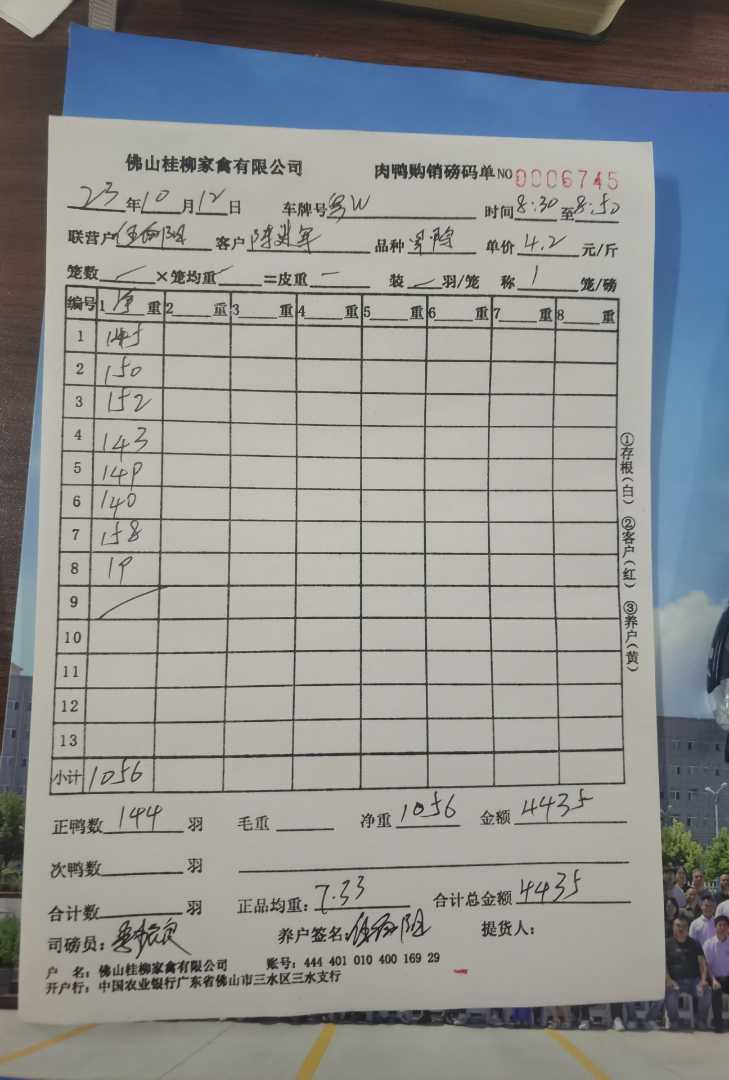 佛山桂柳家禽有限公司 肉鸭购销磅码单 NO 0006745
23 年 10 月 12 日 车牌号 粤W 时间 8:30 至 8:50
联营户 客户 陈 军 品种 单价 4.2 元/斤
笼数 — ×笼均重 — =皮重 — 装 — 羽/笼 称 1 笼/磅
编号 1 净 重 2 重 3 重 4 重 5 重 6 重 7 重 8 重
1 145
2 150
3 152
4 143
5 149
6 140
7 158
8 19
9
10
11
12
13
小计 1056
正鸭数 144 羽 毛重 净重 1056 金额 4435
次鸭数 羽
合计数 羽 正品均重: 7.33 合计总金额 4435
司磅员: 养户签名: 提货人:
户 名: 佛山桂柳家禽有限公司 账号: 444 401 010 400 169 29
开户行: 中国农业银行广东省佛山市三水区三水支行
①存根(白) ②客户(红) ③养户(黄)